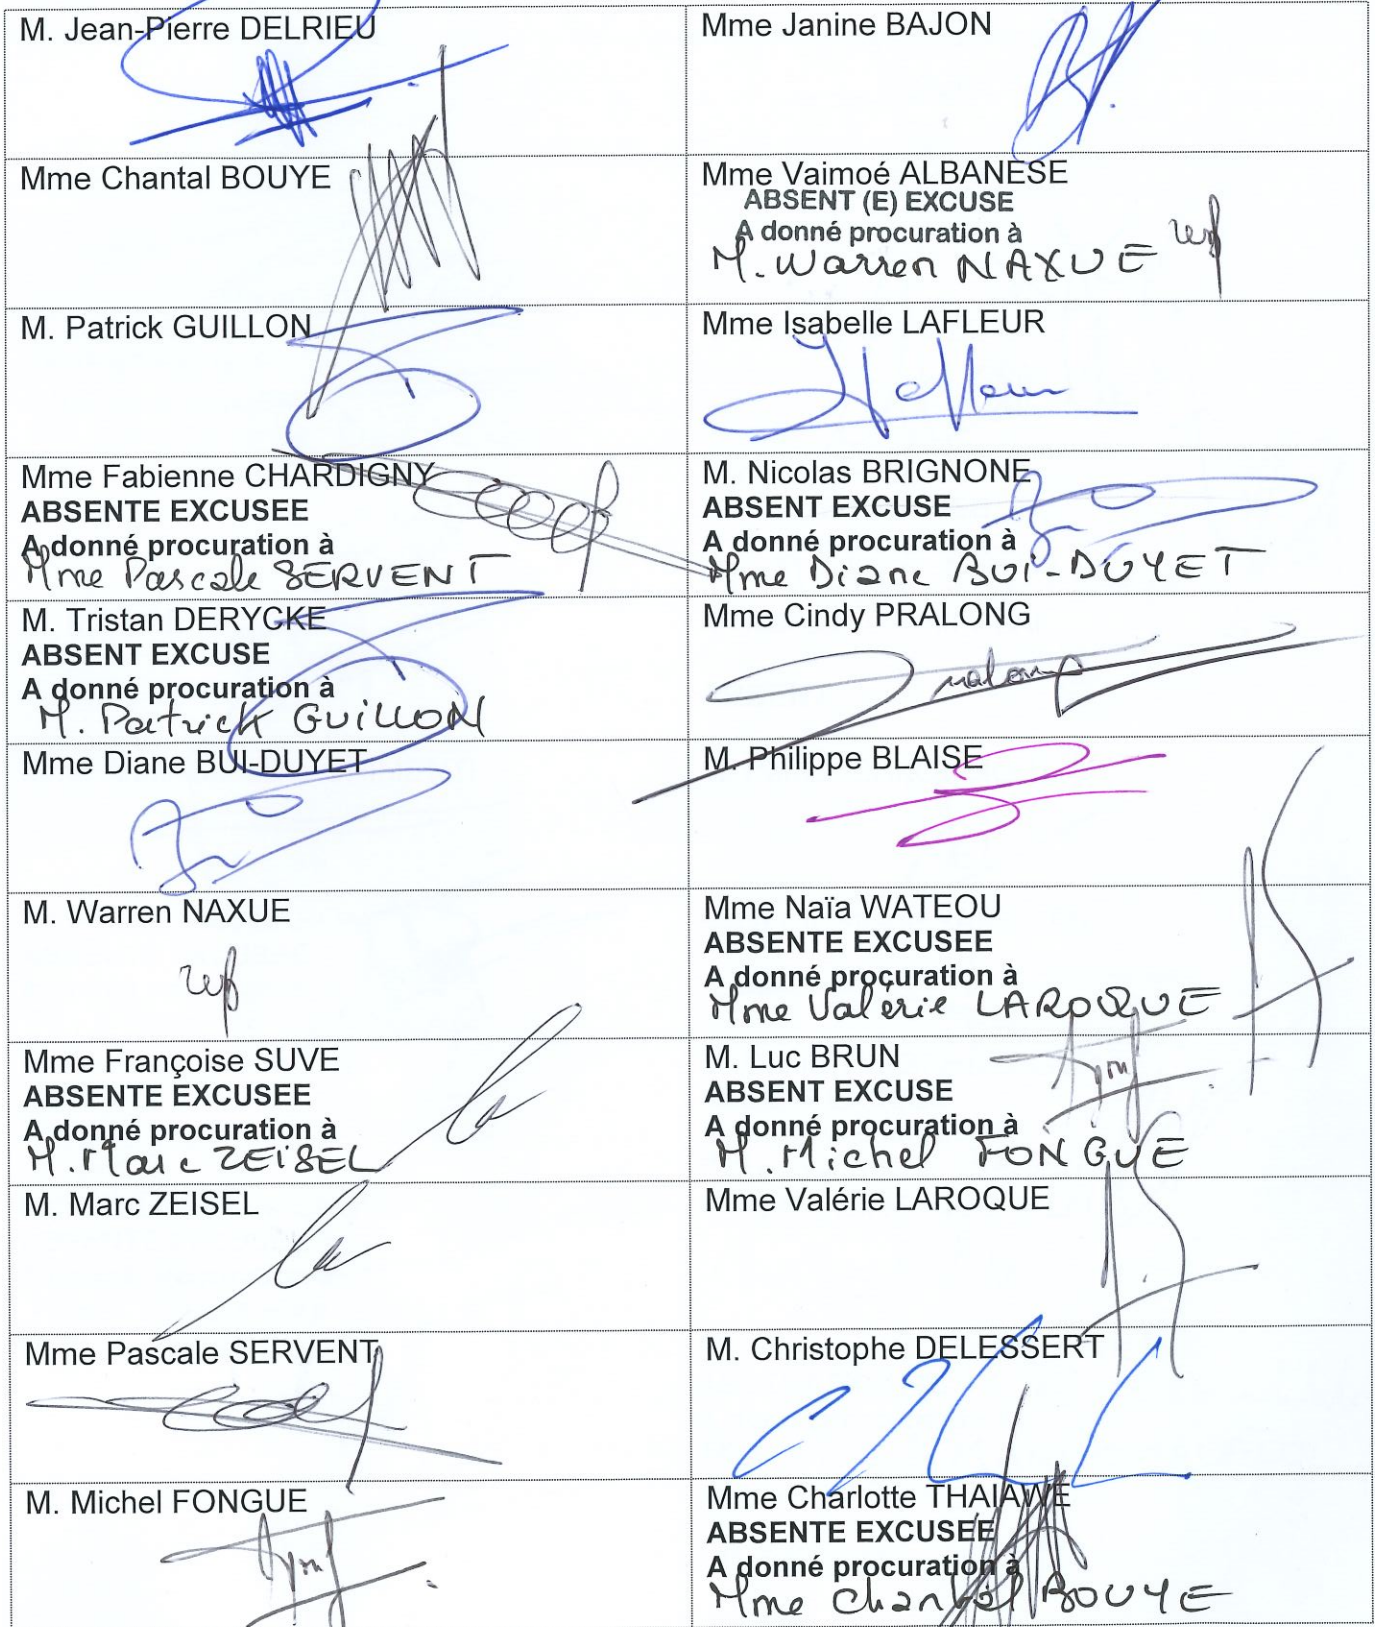 M. Jean-Pierre DELRIEU
Mme Janine BAJON
Mme Chantal BOUYE
Mme Vaimoé ALBANESE
ABSENT (E) EXCUSE
A donné procuration à
M. Warren NAXUE
M. Patrick GUILLON
Mme Isabelle LAFLEUR
Mme Fabienne CHARDIGNY
ABSENTE EXCUSEE
A donné procuration à
Mme Pascale SERVENT
M. Nicolas BRIGNONE
ABSENT EXCUSE
A donné procuration à
Mme Diane BUI-DUYET
M. Tristan DERYCKE
ABSENT EXCUSE
A donné procuration à
M. Patrick GUILLON
Mme Cindy PRALONG
Mme Diane BUI-DUYET
M. Philippe BLAISE
M. Warren NAXUE
Mme Naïa WATEOU
ABSENTE EXCUSEE
A donné procuration à
Mme Valérie LAROQUE
Mme Françoise SUVE
ABSENTE EXCUSEE
A donné procuration à
M. Marc ZEISEL
M. Luc BRUN
ABSENT EXCUSE
A donné procuration à
M. Michel FONGUE
M. Marc ZEISEL
Mme Valérie LAROQUE
Mme Pascale SERVENT
M. Christophe DELESSERT
M. Michel FONGUE
Mme Charlotte THAIAWE
ABSENTE EXCUSEE
A donné procuration à
Mme Chantal BOUYE